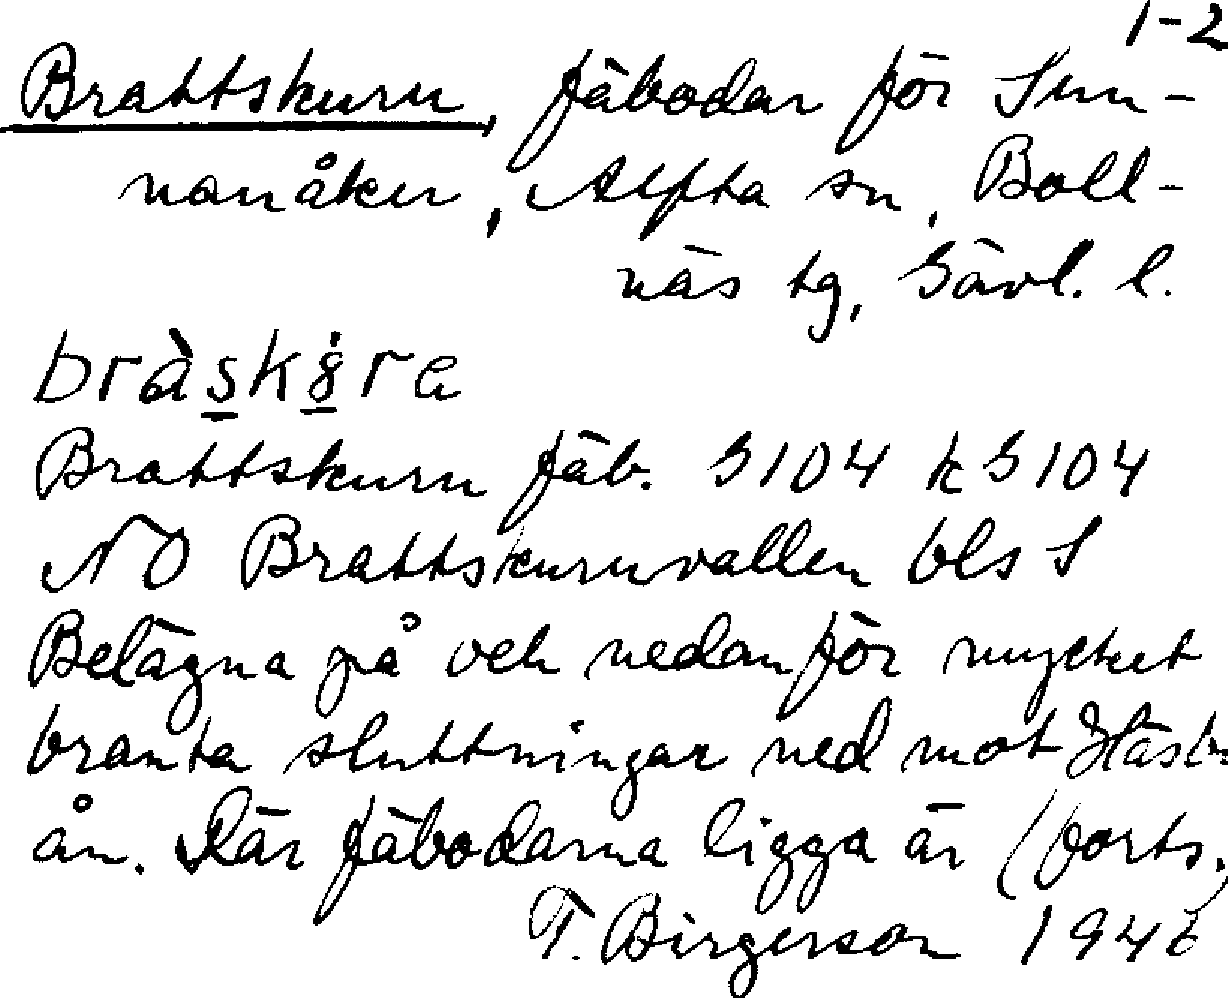 1-2
Brattskuru, fäbodar för Sun-
nanåker, Alfta sn, Boll-
näs tg, Gävl. l.
Brattskuru fäb. G104 k G104
NO Brattskuruvallen bls S
Belägna på och nedanför mycket
branta sluttningar ned mot
ån. Där fäbodarna ligga är (forts.)
T. Birgerson 1946